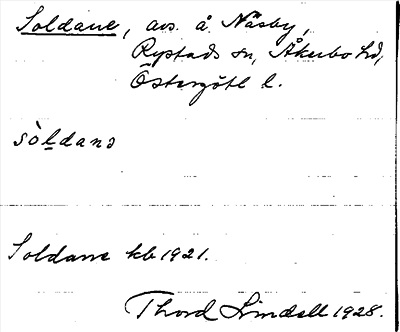 Soldane, avs. å Näsby,
Rystads sn, Åkerbo hd,
Östergötl l.
sòldanə
Soldane kb 1921.
Thord Lindell 1928.